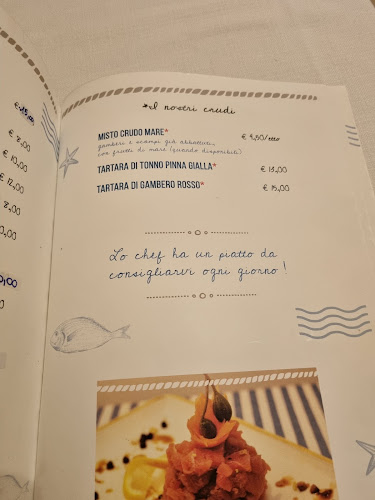 *I nostri crudi
MISTO CRUDO MARE* € 9,50/etto
gamberi e scampi già abbattuti,
con frutti di mare (quando disponibili)
TARTARA DI TONNO PINNA GIALLA* € 13,00
TARTARA DI GAMBERO ROSSO* € 15,00
Lo chef ha un piatto da
consigliarvi ogni giorno!
€ 8,00
€ 10,00
€ 12,00